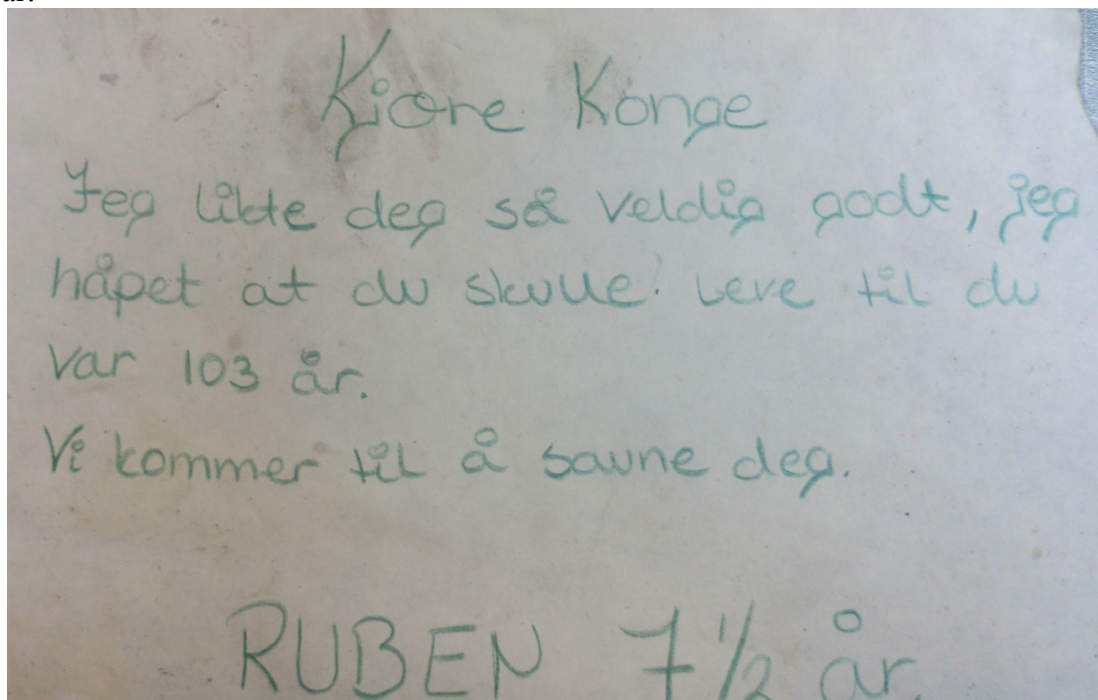 Kjære Konge
Jeg likte deg så veldig godt, jeg
håpet at du skulle leve til du
var 103 år.
Vi kommer til å savne deg.
RUBEN 7 1/2 år.